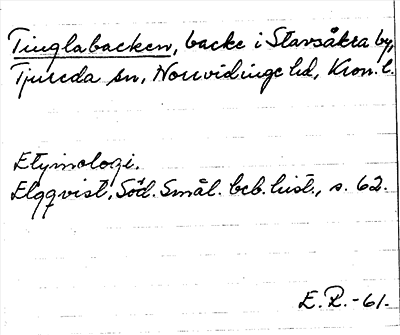 Tinglabacken, backe i Stavsåkra by,
Tjureda sn, Norrvidinge hd, Kron. l.
Etymologi.
Elgqvist, Söd. Smål. beb. hist., s. 62.
E. R. -61.